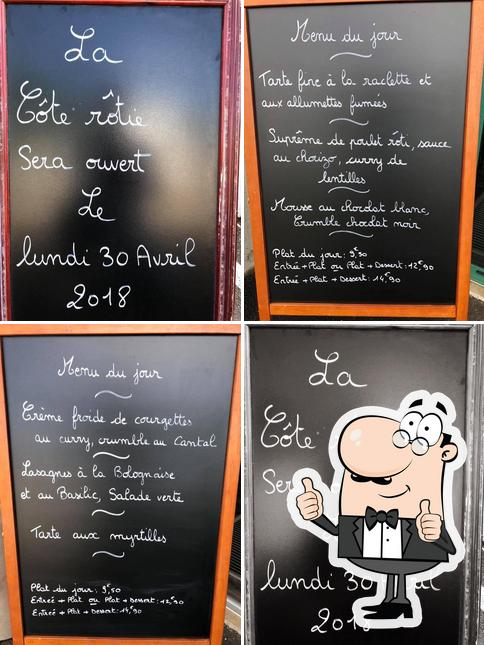 La
Côte rôtie
Sera ouvert
Le
lundi 30 Avril
2018
Menu du jour
Tarte fine à la raclette et
aux allumettes fumées
Suprême de poulet rôti, sauce
au chorizo, curry de
lentilles
Mousse au chocolat blanc,
Crumble chocolat noir
Plat du jour: 9,50
Entrée + Plat ou Plat + Dessert: 12€90
Entrée + Plat + Dessert: 14€90
Menu du jour
Crème froide de courgettes
au curry, crumble au Cantal
Lasagnes à la Bolognaise
et au Basilic, Salade verte
Tarte aux myrtilles
Plat du jour: 9€50
Entrée + Plat ou Plat + Dessert: 12€90
Entrée + Plat + Dessert: 14€90
La
Côte
lundi 30